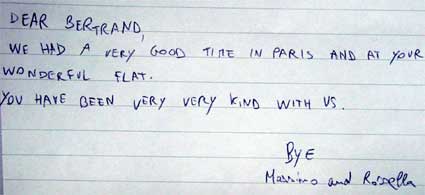 DEAR BERTRAND,
WE HAD A VERY GOOD TIME IN PARIS AND AT YOUR
WONDERFUL FLAT.
YOU HAVE BEEN VERY VERY KIND WITH US.
BYE
Massimo and Rossella